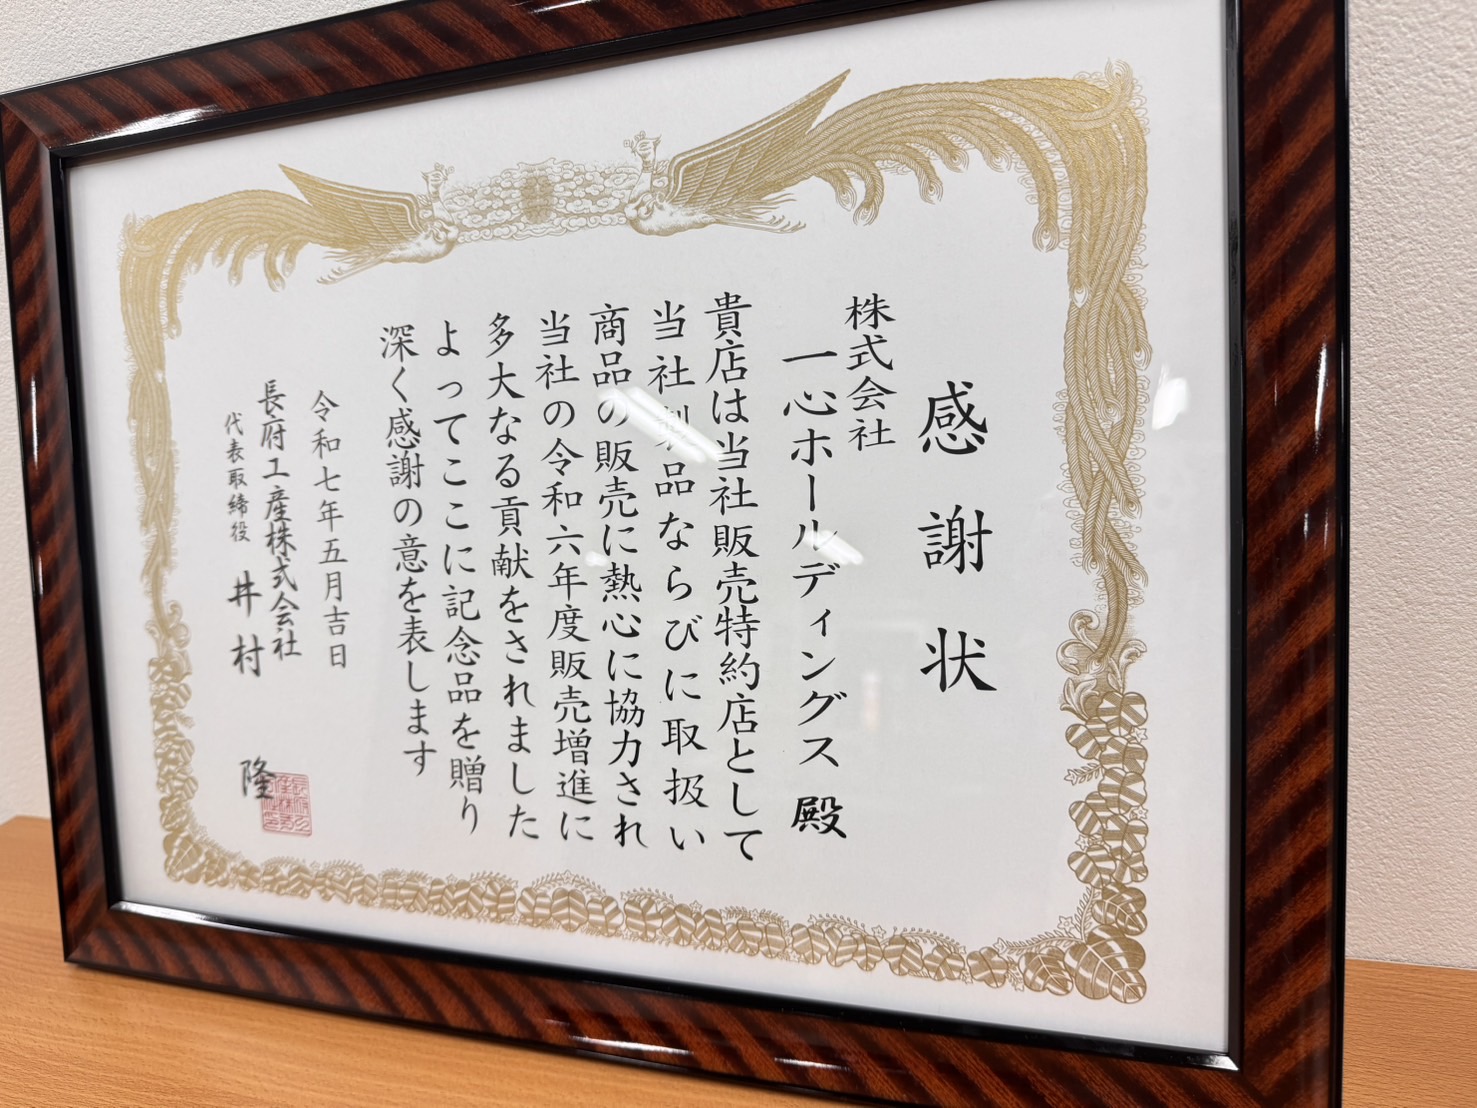 感謝状
株式会社
一心ホールディングス 殿
貴店は当社販売特約店として
当社製品ならびに取扱い
商品の販売に熱心に協力され
当社の令和六年度販売増進に
多大なる貢献をされました
よってここに記念品を贈り
深く感謝の意を表します
令和七年五月吉日
長府工産株式会社
代表取締役 井村 隆